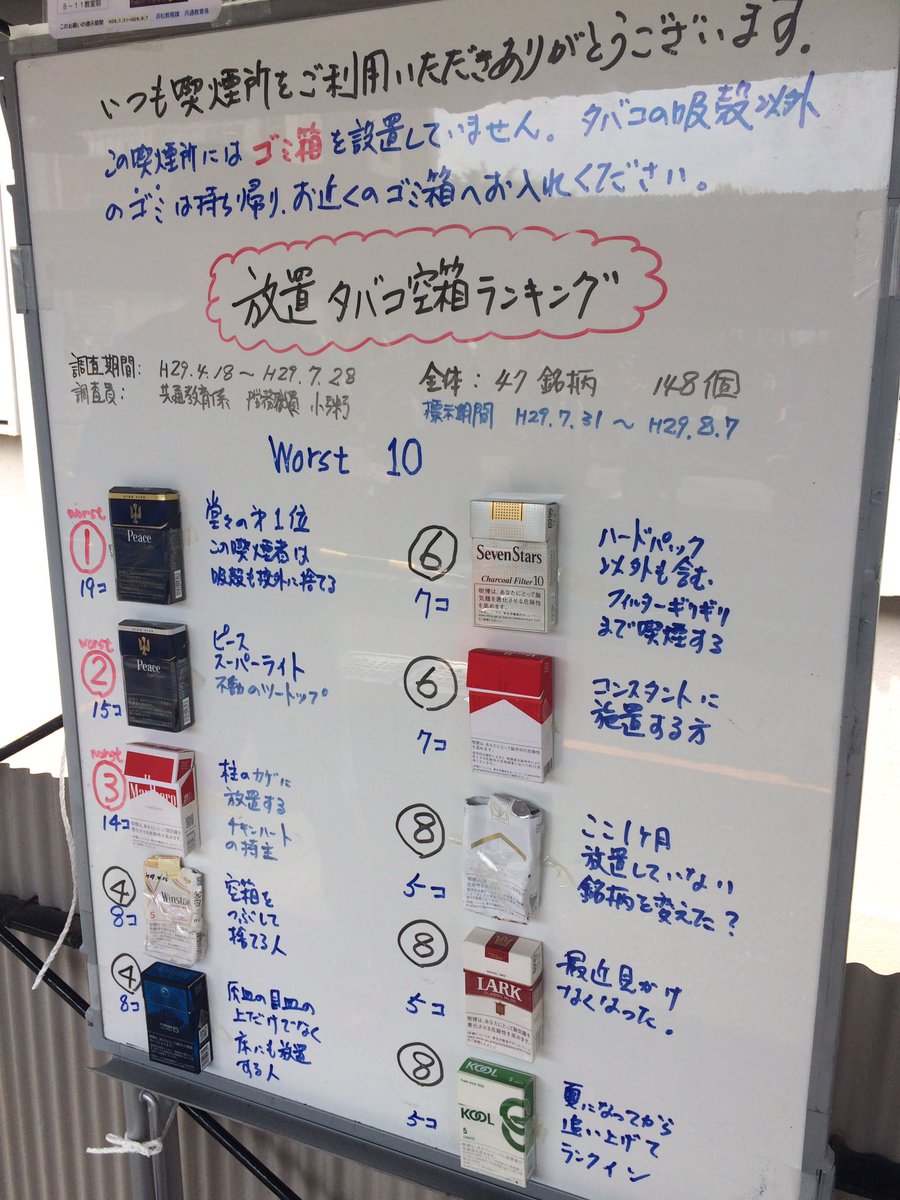 8-11教室前
このお願いの提示期間 H29.7.31~H29.8.7 浜松教務課 共通教育係
いつも喫煙所をご利用いただきありがとうございます。
この喫煙所にはゴミ箱を設置していません。タバコの吸殻以外
のゴミは持ち帰り、お近くのゴミ箱へお入れください。
放置タバコ空箱ランキング
調査期間: H29.4.18~H29.7.28
調査員: 共通教育係
全体: 47銘柄 148個
標示期間 H29.7.31~H29.8.7
Worst 10
worst
①
19コ
Peace
堂々の才1位
この喫煙者は
吸殻も枠外に捨てる
worst
②
15コ
Peace
ピース
スーパーライト
不動のツートップ
worst
③
14コ
Marlboro
柱のカゲに
放置する
チキンハート
の持主
④
8コ
Winston
5
空箱を
つぶして
捨てる人
④
8コ
灰皿の目皿の
上だけでなく
床にも放置
する人
⑥
7コ
SevenStars
Charcoal Filter 10
喫煙は、あなたにとって肺
気腫を悪化させる危険性
を高めます。
ハードパック
以外も含む、
フィルターギリギリ
まで喫煙する
⑥
7コ
コンスタントに
放置する方
⑧
5コ
ここ1ケ月
放置していない
銘柄を変えた?
⑧
5コ
LARK
最近見かけ
なくなった。
⑧
5コ
KOOL
KOOL
5
LIGHTS
夏になってから
追い上げて
ランクイン